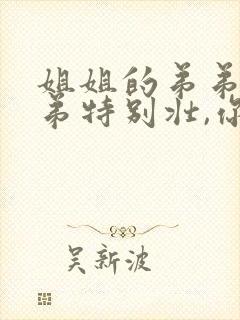 姐姐的弟弟
弟特别壮,你
吴新波